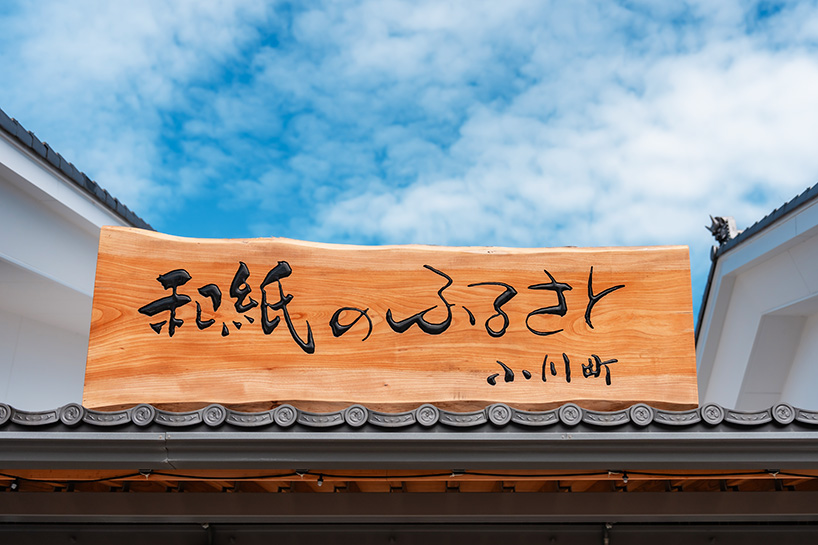 和紙のふるさと
小川町